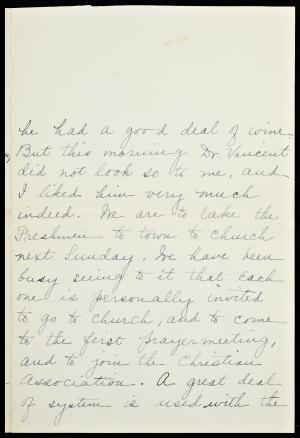 he had a good deal of wine.
But this morning Dr. Vincent
did not look so to me, and
I liked him very much
indeed. We are to take the
Freshmen to town to church
next Sunday. We have been
busy seeing to it that each
one is personally invited
to go to church, and to come
to the first prayermeeting,
and to join the Christian
Association. A great deal
of system is used with the